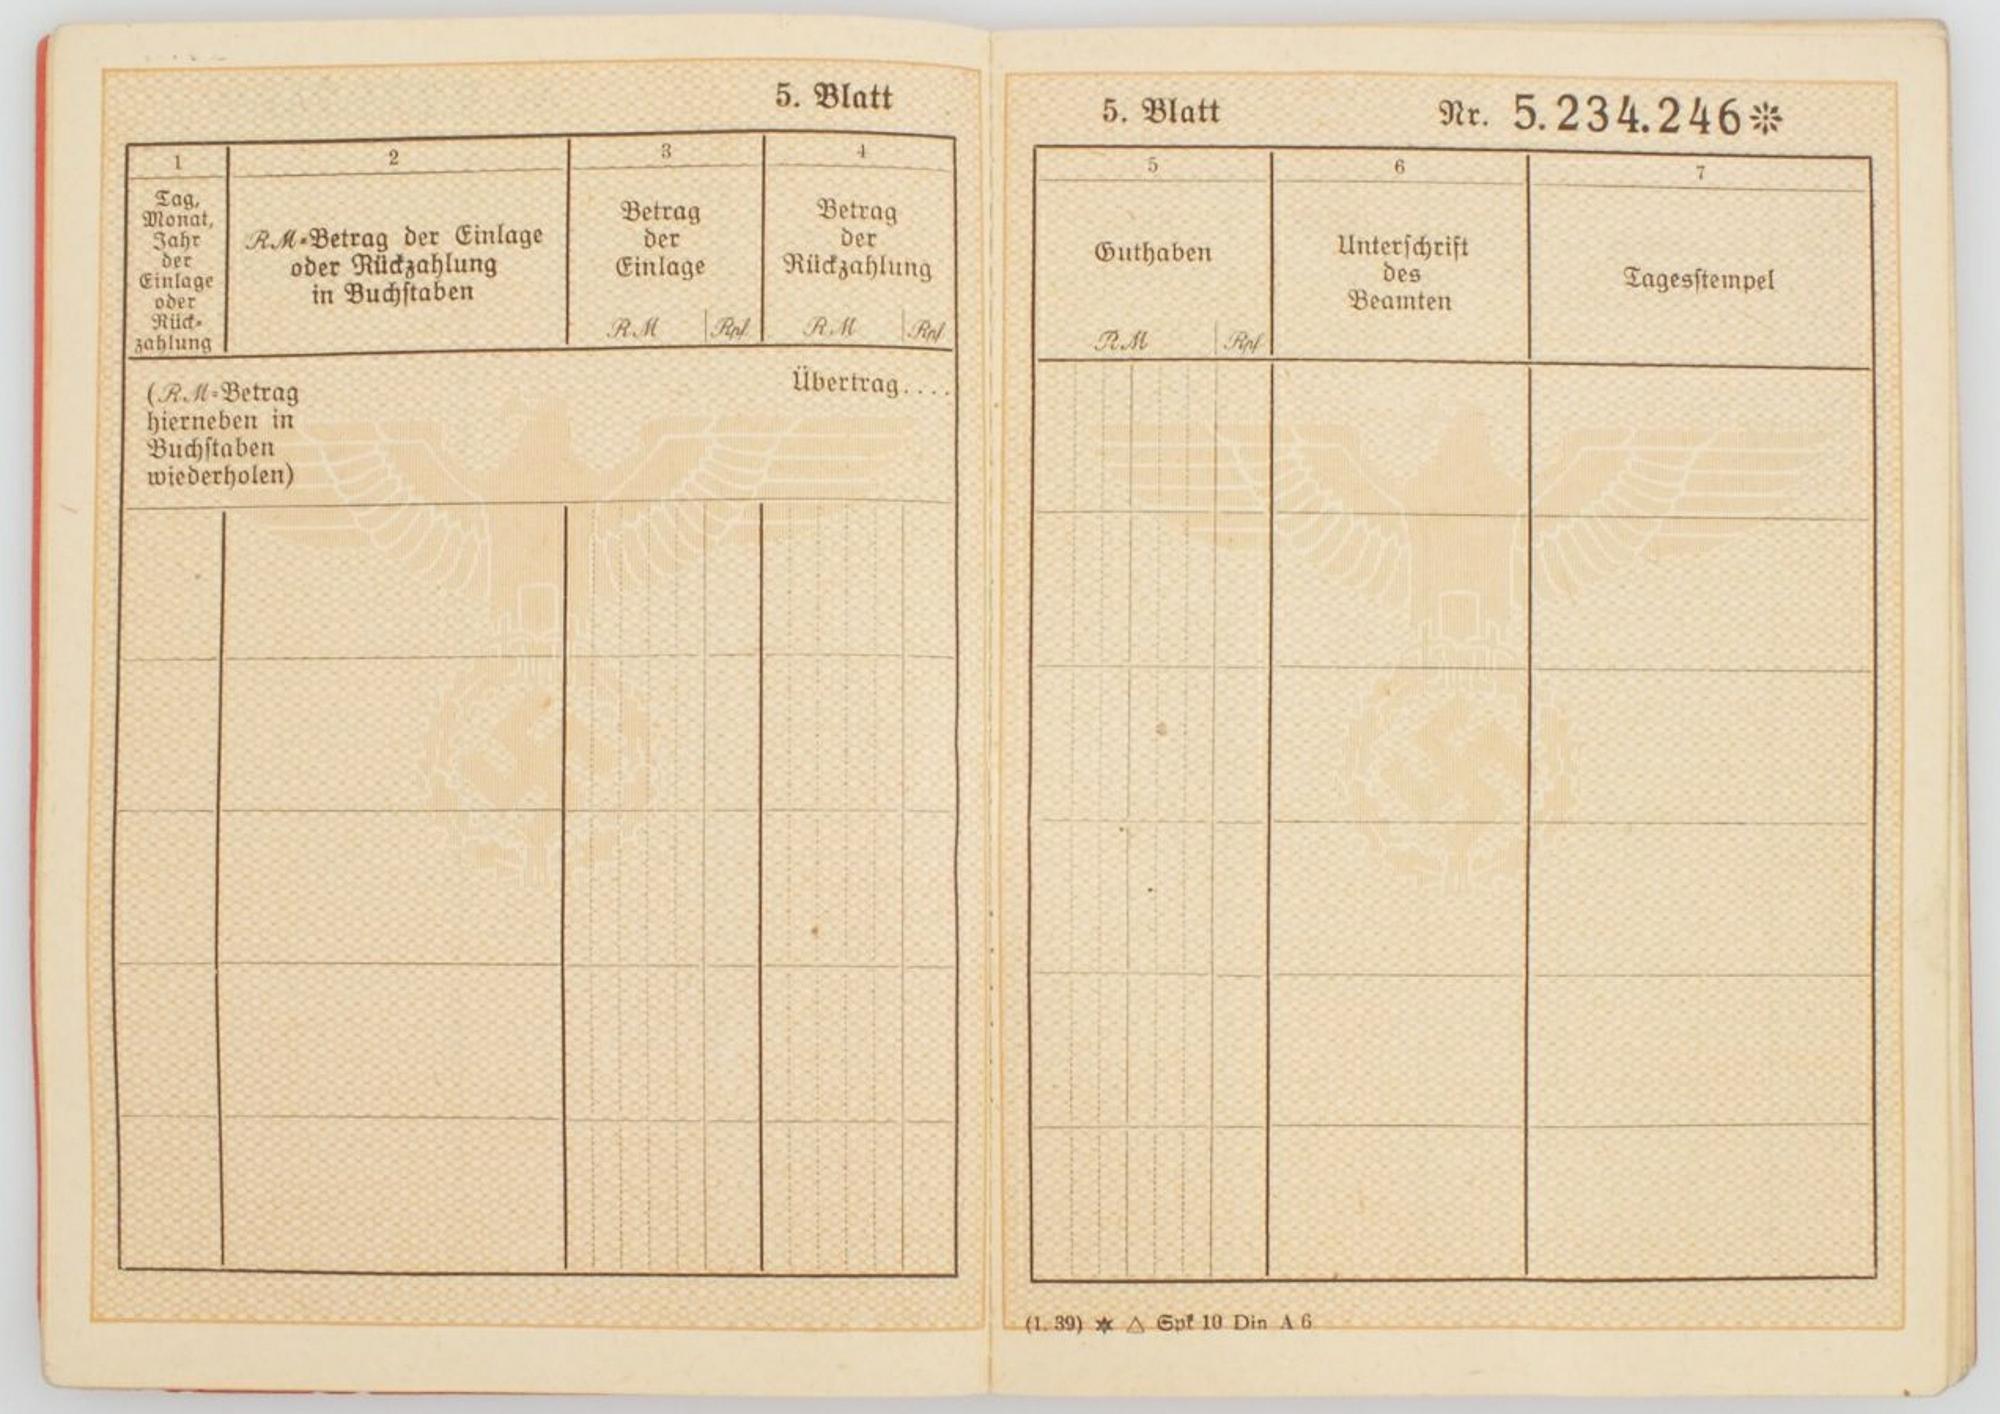 5. Blatt
1
2
3
4
Tag,
Monat,
Jahr
der
Einlage
oder
Rück-
zahlung
RM-Betrag der Einlage
oder Rückzahlung
in Buchstaben
Betrag
der
Einlage
RM Rpf
Betrag
der
Rückzahlung
RM Rpf
(RM-Betrag
hierneben in
Buchstaben
wiederholen)
Übertrag....
5. Blatt Nr. 5.234.246*
5
6
7
Guthaben
RM Rpf
Unterschrift
des
Beamten
Tagesstempel
(1. 39) * △ Spk 10 Din A 6